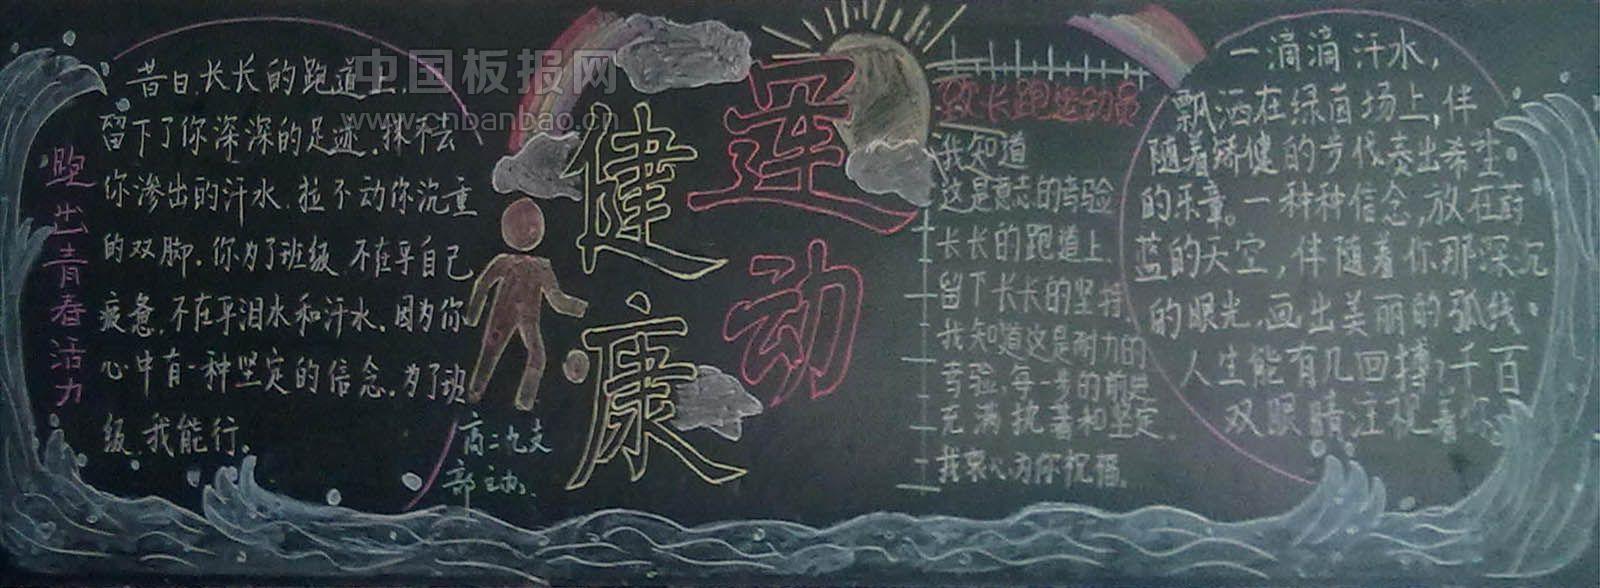 中国板报网
www.cnbanbao.cn
跑出青春活力
昔日长长的跑道上，
留下了你深深的足迹，抹不去
你渗出的汗水，拉不动你沉重
的双脚。你为了班级，不在乎自己
疲惫，不在乎泪水和汗水，因为你
心中有一种坚定的信念，为了班
级，我能行。
健康
运动
高二九支
部主办
致长跑运动员
我知道
这是意志的考验
长长的跑道上
留下长长的坚持
我知道这是耐力的
考验，每一步的前进
充满执著和坚定
我衷心为你祝福。
一滴滴汗水，
飘洒在绿茵场上，伴
随着矫健的步伐奏出希望
的乐章。一种种信念，放在蔚
蓝的天空，伴随着你那深沉
的眼光，画出美丽的弧线。
人生能有几回搏，千百
双眼睛注视着你